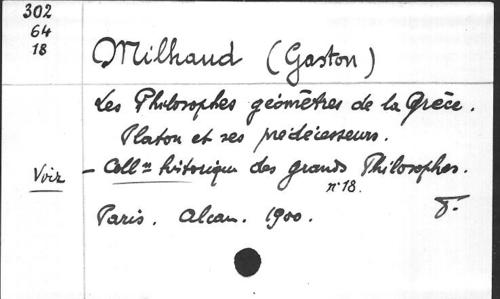 302
64
18
Milhaud (Gaston)
Les Philosophes géomètres de la Grèce.
Platon et ses prédécesseurs.
Voir - Coll^n historique des grands Philosophes.
n° 18.
Paris. Alcan. 1900.